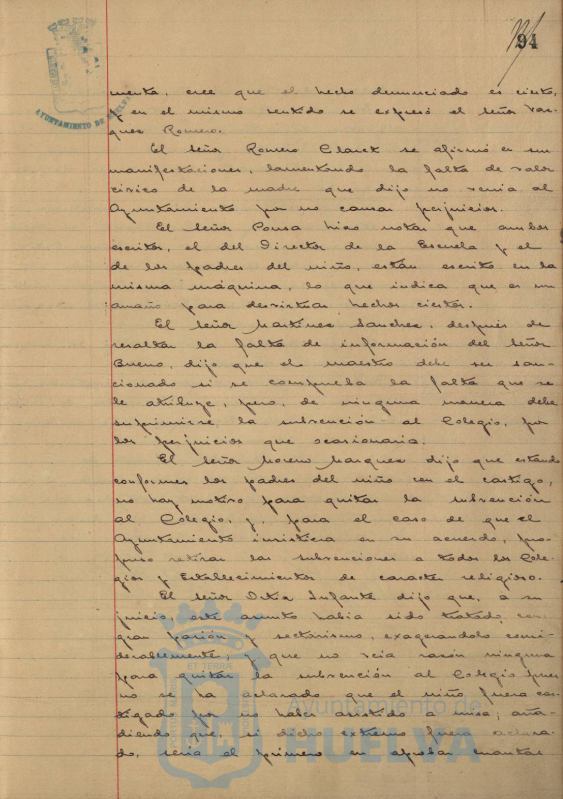 94
AYUNTAMIENTO DE HUELVA
menta, cree que el hecho denunciado es cierto,
y en el mismo sentido se expresó el señor Vaz-
quez Romero.
El señor Romero Clarck se afirmó en sus
manifestaciones, lamentando la falta de valor
cívico de la madre que dijo no venia al
Ayuntamiento por no causar perjuicios.
El señor Ponsa hizo notar que ambos
escritos, el del Director de la Escuela y el
de los padres del niño, están escrito en la
misma máquina, lo que indica que es un
amaño para desvirtuar hechos ciertos.
El señor Martínez Sanchez, después de
resaltar la falta de información del señor
Bueno, dijo que el maestro debe ser san-
cionado si se comprueba la falta que se
le atribuye, pero, de ninguna manera debe
suprimirse, la subvención al Colegio, por
los perjuicios que ocasionaria.
El señor Moreno Marquez dijo que estando
conformes los padres del niño con el castigo,
no hay motivo para quitar la subvención
al Colegio, y, para el caso de que el
Ayuntamiento insistiera en su acuerdo, pro-
puso retirar las subvenciones a todos los Cole-
gios y Establecimientos de caracter religioso.
El señor Ortiz Infante dijo que, a su
juicio, este asunto habia sido tratado, con
gran pasión y sectarismo, exagerandolo consi-
derablemente, y que no veia razón ninguna
para quitar la subvención al Colegio pues
no se ha aclarado que el niño fuera cas-
tigado por no haber asistido a misa; aña-
diendo que, si dicho extremo fuera aclara-
do, seria el primero en aprobar cuantas
ET TERRÆ
Ayuntamiento de
HUELVA